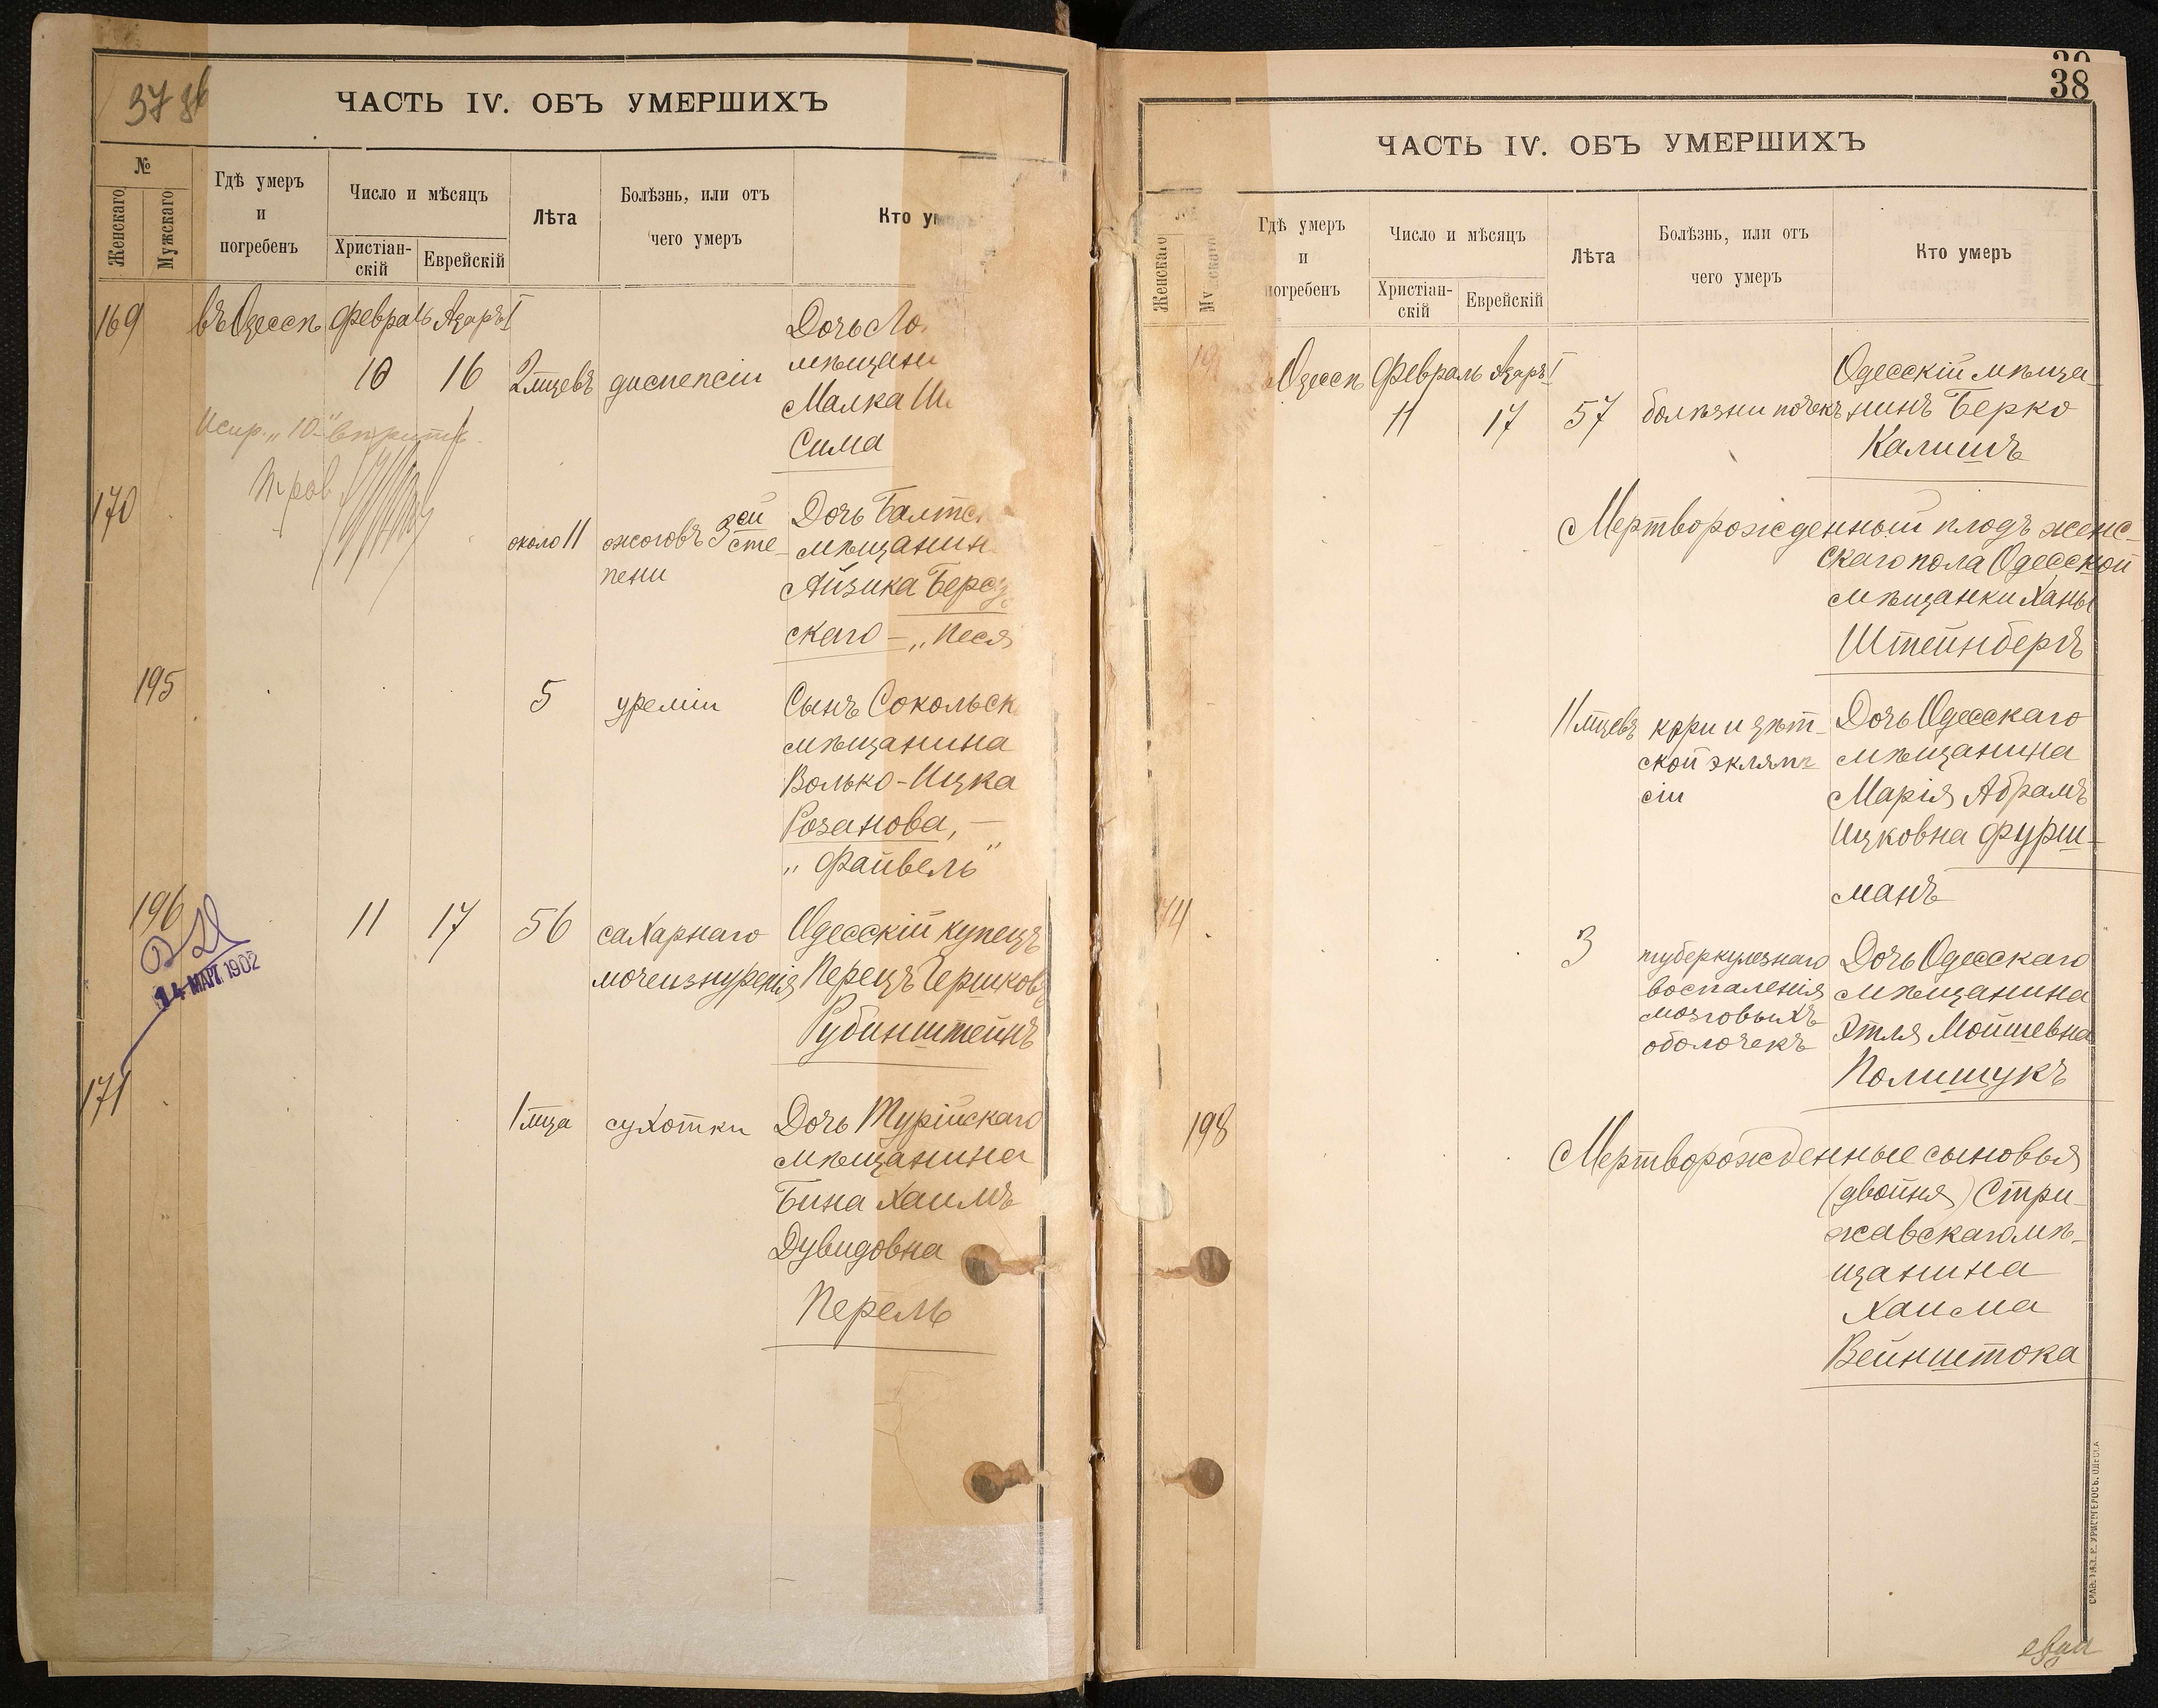 37
ЧАСТЬ IV. ОБЪ УМЕРШИХЪ
№
Женскаго
Мужскаго
Гдѣ умеръ
и
погребенъ
Число и мѣсяцъ
Христіан-
скій
Еврейскій
Лѣта
Болѣзнь, или отъ
чего умеръ
Кто
169
въ Одессѣ февраль Адаръ I
10 16 2 мцевъ диспепсіи
Дочь
мѣщани
Малка
Сима
Испр. „10“ вѣрить.
170
около 11 ожоговъ 3ей сте-
пени
Дочь Балтс
мѣщанин
Айзика
скаго — „Песя
195
5 уреміи
Сынъ Сокольск
мѣщанина
Волько-Ицка
Розанова, —
„Файвель“
196
11 17 56 сахарнаго
мочеизнуренія
Одесскій купецъ
Перецъ Гершковъ
Рубинштейнъ
14 МАРТ 1902
171
1 мца сухотки
Дочь Турійскаго
мѣщанина
Бина Хаимъ
Дувидовна
Перель
38
ЧАСТЬ IV. ОБЪ УМЕРШИХЪ
Женскаго
Гдѣ умеръ
и
погребенъ
Число и мѣсяцъ
Христіан-
скій
Еврейскій
Лѣта
Болѣзнь, или отъ
чего умеръ
Кто умеръ
Одессѣ февраль Адаръ I
11 17 57 болѣзни почекъ
Одесскій мѣща-
нинъ Берко
Калишъ
Мертворожденный плодъ женс-
скаго пола Одесской
мѣщанки Ханы
Штейнбергъ
11 мцевъ кори и дѣт-
ской эклямп
сіи
Дочь Одесскаго
мѣщанина
Марія Абрамъ
Ицковна Фурш-
манъ
74
3 туберкулезнаго
воспаленія
мозговыхъ
оболочекъ
Дочь Одесскаго
мѣщанина
Этля Мойшевна
Полищукъ
198
Мертворожденные сыновья
(двойня) Стри-
жавскаго мѣ-
щанина
Хаима
Вейнштока